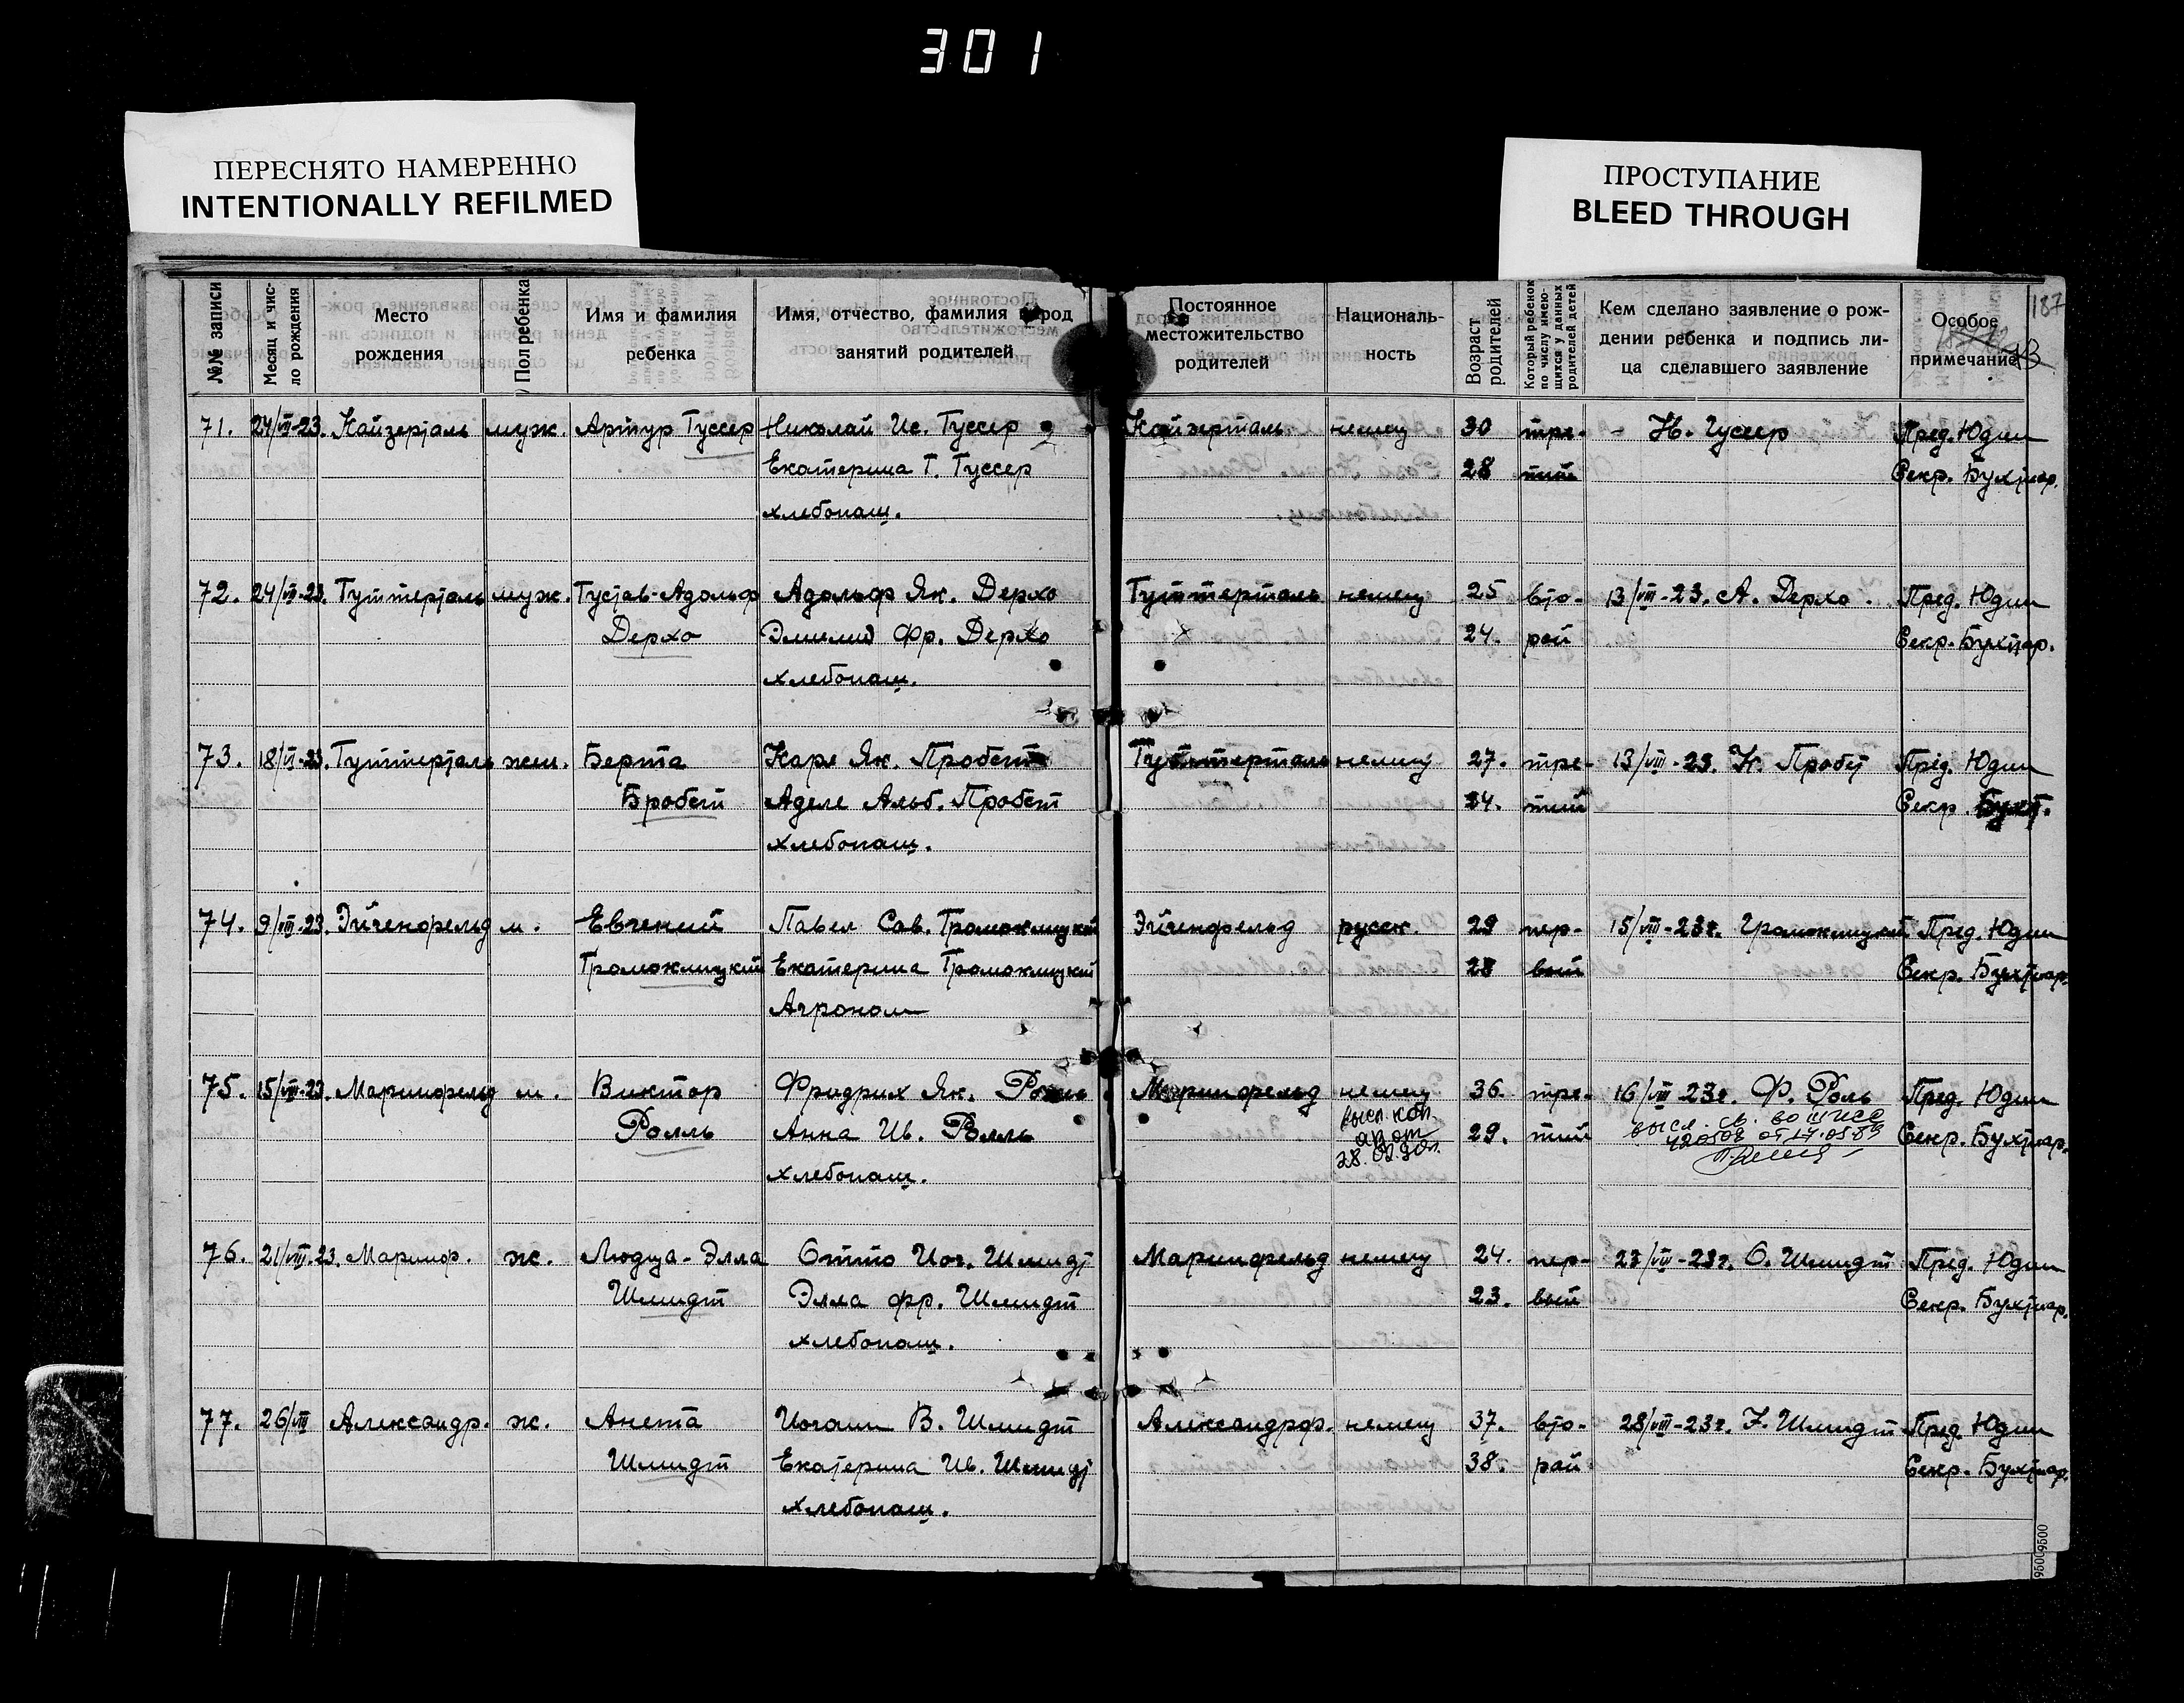 301
ПЕРЕСНЯТО НАМЕРЕННО
INTENTIONALLY REFILMED
ПРОСТУПАНИЕ
BLEED THROUGH
187
№№ записи
Месяц и чис-
ло рождения
Место
рождения
Пол ребенка
Имя и фамилия
ребенка
Имя, отчество, фамилия и род
занятий родителей
Постоянное
местожительство
родителей
Националь-
ность
Возраст
родителей
Который ребенок
по числу имею-
щихся у данных
родителей детей
Кем сделано заявление о рож-
дении ребенка и подпись ли-
ца сделавшего заявление
Особое
примечание
71. 24/VII-23. Кайзерталь муж. Артур Гуссер Николай Ис. Гуссер Кайзерталь немец 30 тре- - Н. Гуссер Пред. Юдин
Екатерина Г. Гуссер 28 тий Секр. Бухтиар.
хлебопаш.
72. 24/VII-23. Гуттерталь муж. Густав-Адольф Адольф Як. Дерхо Гуттерталь немец 25 вто- 13/VIII-23. А. Дерхо. Пред. Юдин
Дерхо Эмилия Фр. Дерхо 24. рой Секр. Бухтиар.
хлебопаш.
73. 18/VI-23. Гуттерталь жен. Берта Карл Як. Пробст Гуттерталь немец 27. тре- 13/VIII-23. К. Пробст Пред. Юдин
Бробст Аделе Альб. Пробст 24. тий Секр. Бухт.
хлебопаш.
74. 9/VIII-23. Эйгенфельд м. Евгений Павел Сав. Громоклицкий Эйгенфельд русск. 29 пер- 15/VIII-23г. Громоклицкий Пред. Юдин
Громоклицкий Екатерина Громоклицкий 28 вый Секр. Бухтиар.
Агроном
75. 15/VIII-23. Мариенфельд м. Виктор Фридрих Як. Ролль Мариенфельд немец 36. тре- 16/VIII-23г. Ф. Роль Пред. Юдин
Ролль Анна Ив. Ролль 29. тий Секр. Бухтиар.
высл. коп.
от
28.02.90г.
высл. св.
420508 от 17.05.89
хлебопаш.
76. 21/VIII.23. Мариенф. ж. Людца-Элла Отто Иог. Шмидт Мариенфельд немец 24. пер- 23/VIII-23г. О. Шмидт Пред. Юдин
Шмидт Элла Фр. Шмидт 23. вый Секр. Бухтиар.
хлебопаш.
77. 26/VIII Александр. ж. Анета Иоганн В. Шмидт Александрф. немец 37. вто- 28/VIII-23г. Шмидт Пред. Юдин
Шмидт Екатерина Ив. Шмидт 38. рой Секр. Бухтиар.
хлебопаш.
96009500